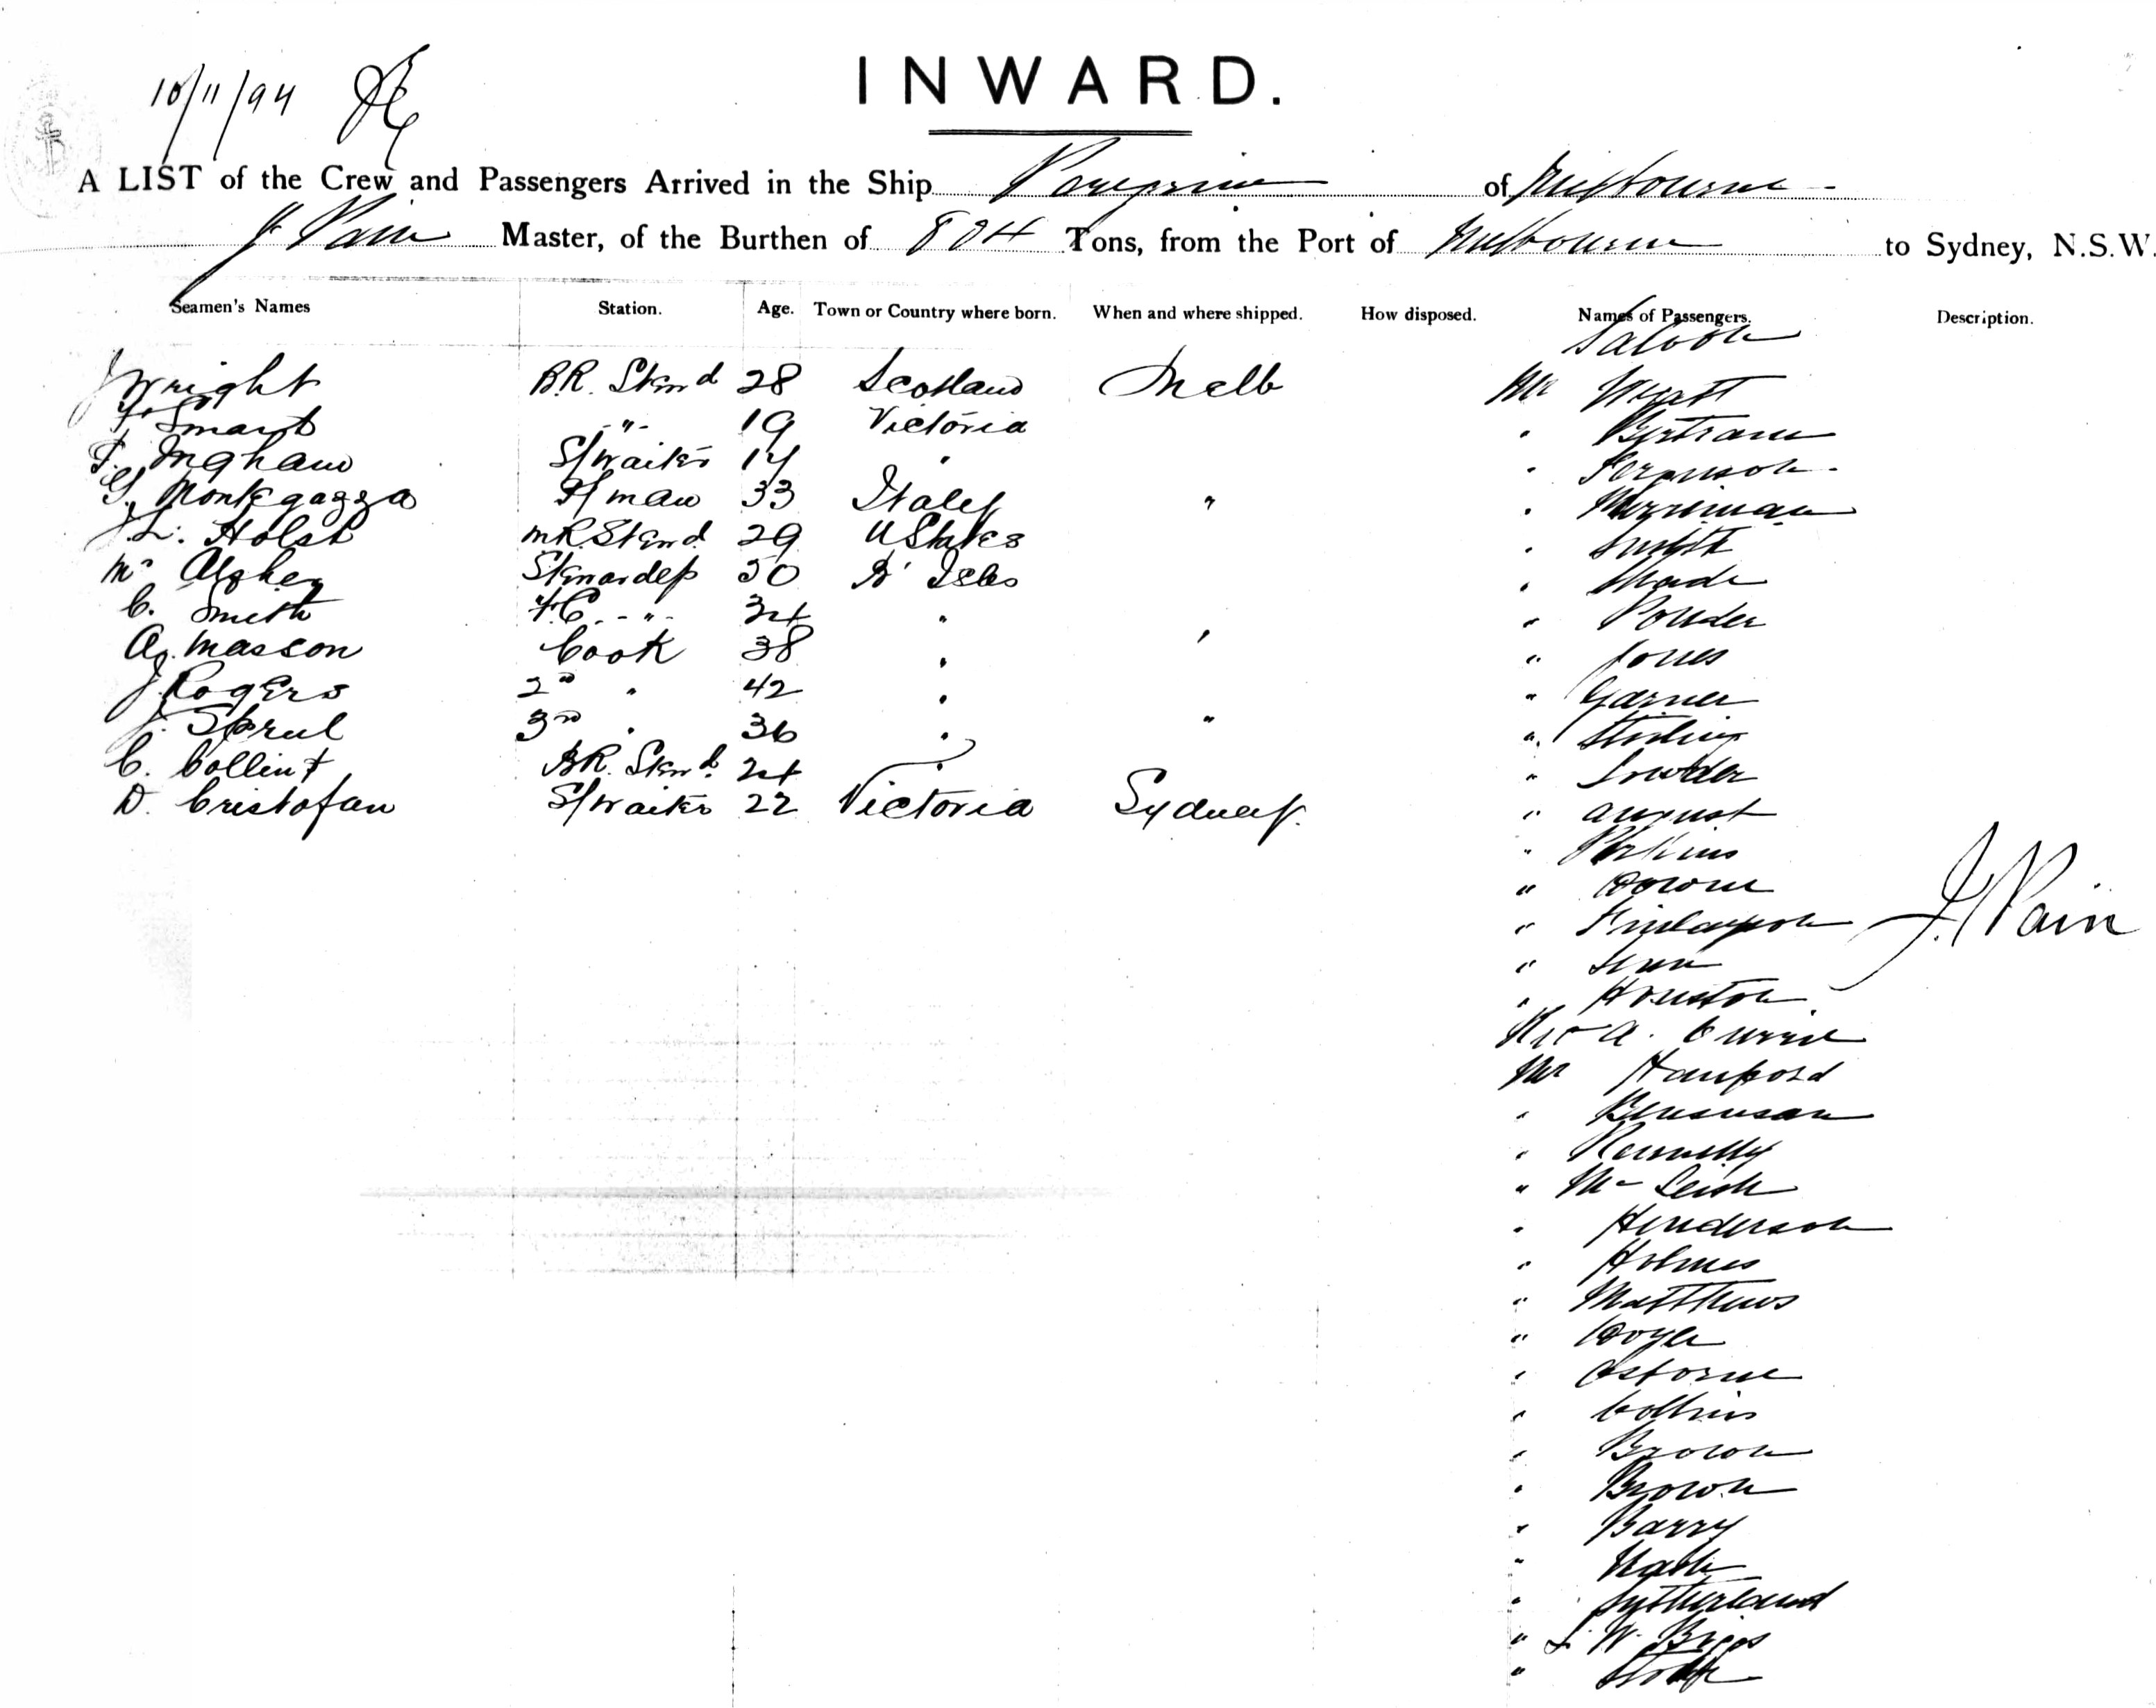 10/11/94
INWARD.
A LIST of the Crew and Passengers Arrived in the Ship Peregrine of Melbourne
J Pain Master, of the Burthen of 804 Tons, from the Port of Melbourne to Sydney, N.S.W.
Seamen's Names Station. Age. Town or Country where born. When and where shipped. How disposed. Names of Passengers. Description.
Saloon
J Wright B.R. Stewd 28 Scotland Melb Mr Wyatt
F. Smart " 19 Victoria " Bertram
F. Ingham S/waiter 17 " " Ferguson
G. Montegazza P/man 33 Italy " " Merriman
J. L. Holst M.R. Stewd. 29 U States " Smith
Mrs Stewardess 50 B' Isles "
C. Smith F.C. " 34 " " Ponder
A. Masson Cook 38 " " " Jones
J. Rogers 2nd " 42 " " Garner
J. 3rd " 36 " " " Stirling
C. Collins BR. Stewd. 24 " " Lowder
D. Cristofan S/waiter 22 Victoria Sydney. " August
" Perkins
"
" Finlayson J. Pain
"
" Houston
A. Currie
Mr Hanford
" Benswan
" Kennelly
" Mc Leish
" Henderson
" Holmes
" Matthews
" Doyle
" Osborne
" Collins
" Brown
" Brown
" Barry
" Nash
" Sutherland
" L. W. Briggs
"